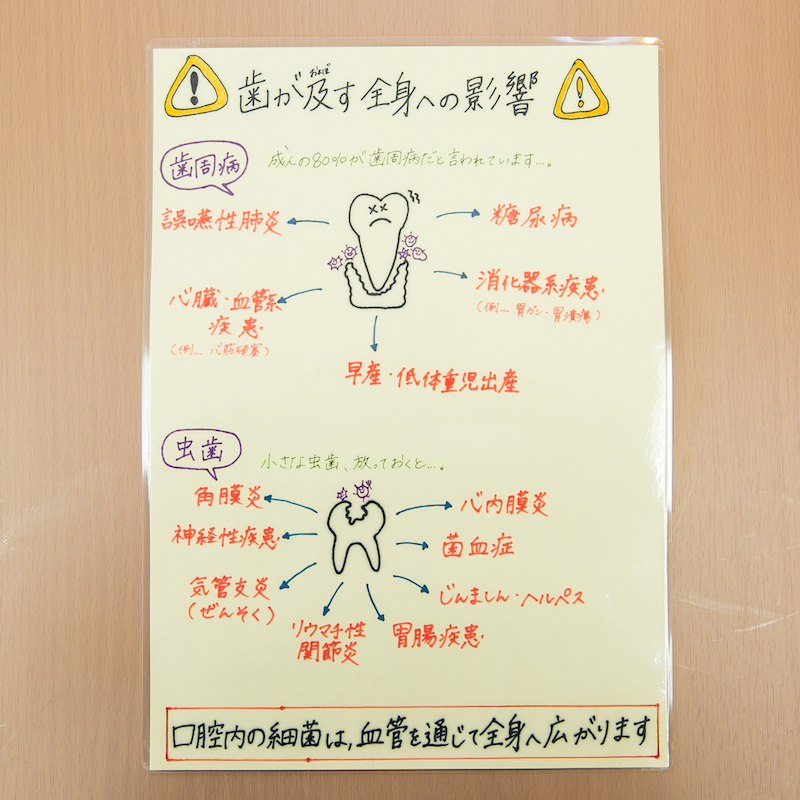 歯が及す全身への影響
およぼ
歯周病
成人の80%が歯周病だと言われています…。
誤嚥性肺炎
糖尿病
心臓・血管系
疾患
(例… 心筋梗塞)
消化器系疾患
(例… 胃ガン・胃潰瘍)
早産・低体重児出産
虫歯
小さな虫歯、放っておくと…。
角膜炎
心内膜炎
神経性疾患
菌血症
気管支炎
(ぜんそく)
じんましん・ヘルペス
リウマチ性
関節炎
胃腸疾患
口腔内の細菌は,血管を通じて全身へ広がります